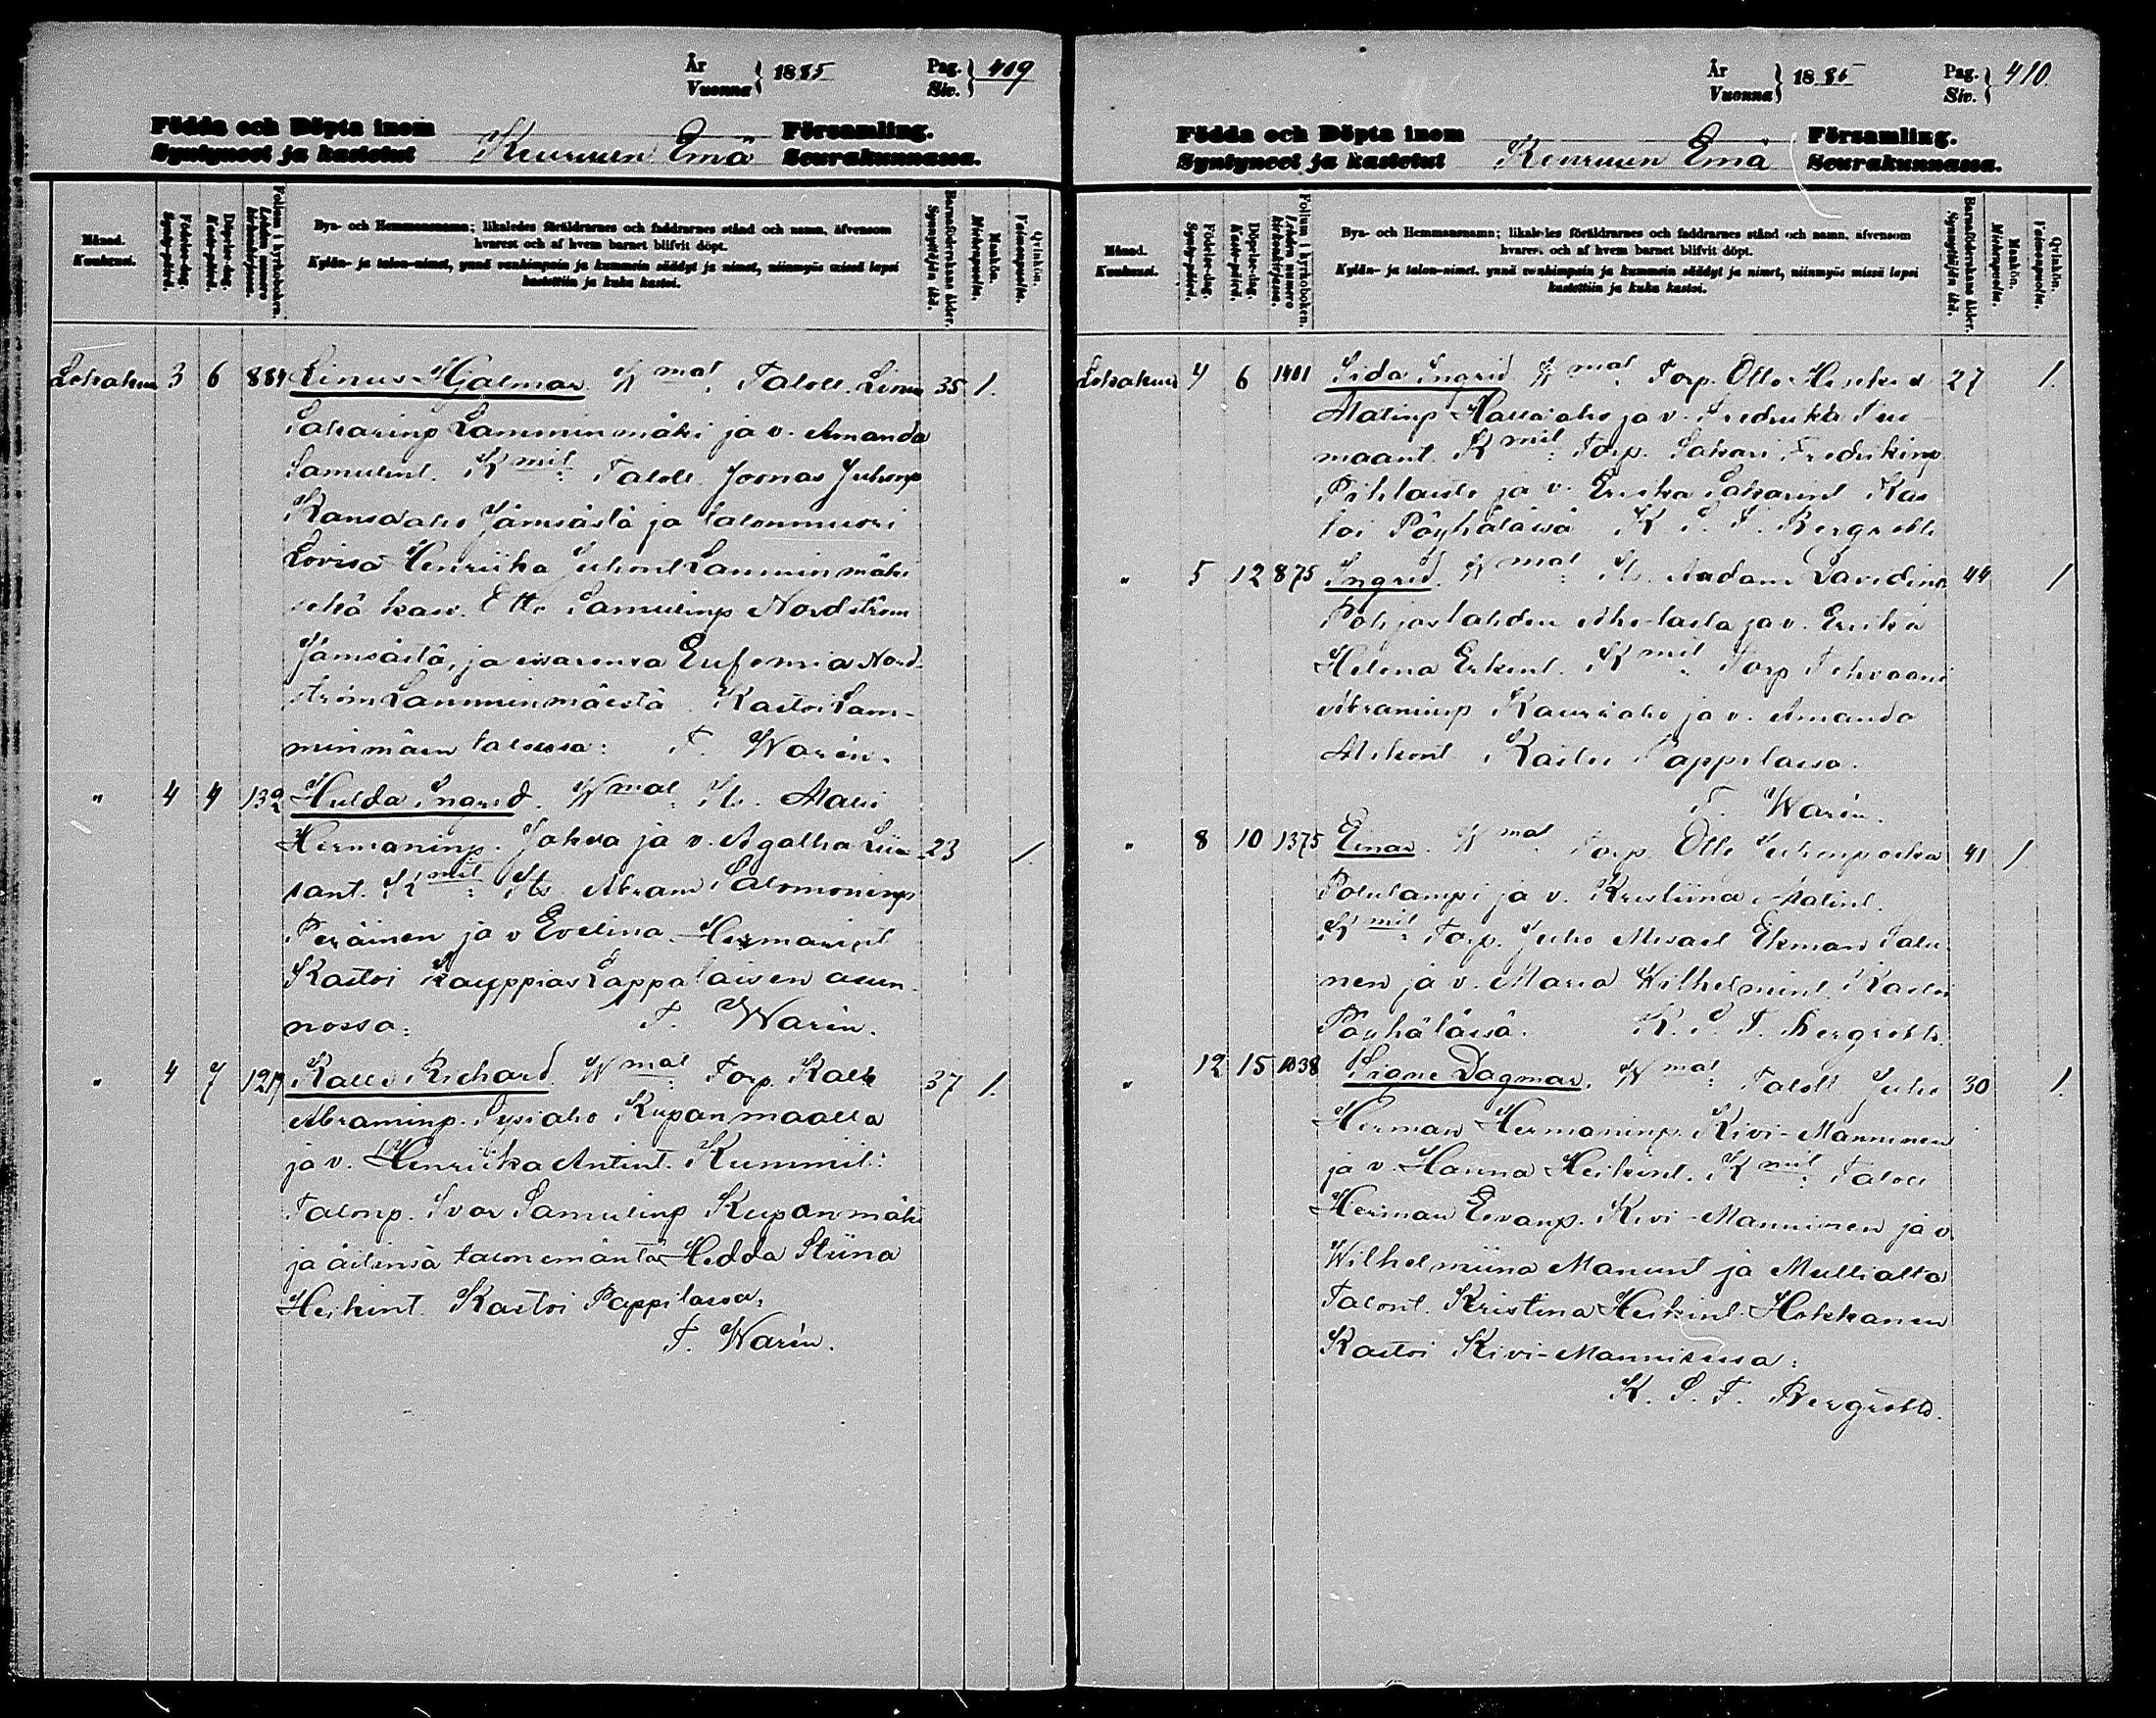 År
Vuonna } 1885
Pag.
Siv. } 409
Födda och Döpta inom
Syntyneet ja kastetut Keuruun Emä Församling.
Seurakunnassa.
Månad.
Kuukausi.
Födelse-dag.
Synty-päivä.
Döpelse-dag.
Kaste-päivä.
Folium i kyrkoboken.
Lehden numero kirkonkirjassa.
Bya- och Hemmansnamn; likaledes föräldrarnes och faddrarnes stånd och namn, äfvensom
hvarest och af hvem barnet blifvit döpt.
Kylän- ja talon-nimet, ynnä vanhimpain ja kummein säädyt ja nimet, niinmyös missä lapsi
kastettiin ja kuka kastoi.
Barnaföderskans ålder.
Synnyttäjän ikä.
Mankön.
Miehenpuolta.
Qvinkön.
Vaimonpuolta.
Lokakuu 3 6 884 Linus Hjalmar. Wmat: Taloll. Linus 35 1.
Sakarinp Lamminmäki ja v. Amanda
Samulint. Kmit: Taloll Joonas Juhonp
Kansa aho Jämsästä ja talonmuori
Lovisa Henriika Juhont Lamminmäki
sekä kasv. Otto Samulinp Nordström
Jämsästä, ja sisarensa Eufemia Nord-
ström Lamminmäestä. Kastoi Lam-
minmäen talossa: F. Warén.
" 4 4 139 Hulda Ingrid. Wmat: Its. Matti
Hermaninp. Jahva ja v. Agatha Lii- 23 1.
sant. Kmit: Its. Abram Salomoninp
Peräinen ja v Evelina Hermanint
Kastoi kauppias Lappalaisen asun-
nossa: F. Warén.
" 4 7 1217 Kalle Richard. Wmat: Torp. Kalle 37 1.
Abraminp. Sysiaho Kupanmaalla
ja v. Henriika Antint. Kummit:
Talonp. Ivar Samulinp Kupanmäki
ja äitinsä talonemäntä Hedda Stiina
Heikint. Kastoi Pappilassa,
F. Warén.
År
Vuonna } 1885
Pag.
Siv. } 410.
Födda och Döpta inom
Syntyneet ja kastetut Keuruun Emä Församling.
Seurakunnassa.
Månad.
Kuukausi.
Födelse-dag.
Synty-päivä.
Döpelse-dag.
Kaste-päivä.
Folium i kyrkoboken.
Lehden numero kirkonkirjassa.
Bya- och Hemmansnamn; likaledes föräldrarnes och faddrarnes stånd och namn, äfvensom
hvarest och af hvem barnet blifvit döpt.
Kylän- ja talon-nimet, ynnä vanhimpain ja kummein säädyt ja nimet, niinmyös missä lapsi
kastettiin ja kuka kastoi.
Barnaföderskans ålder.
Synnyttäjän ikä.
Mankön.
Miehenpuolta.
Qvinkön.
Vaimonpuolta.
Lokakuu 4 6 1401 Iida Ingrid Wmat: Torp. Otto 27 1.
Matinp ja v. Fredrika
maant. Kmit: Torp. Sakari Fredrikinp
ja v. Erika Sakarint Kas-
toi Pöyhölässä K S F Bergroth
" 5 12 875 Ingrid. Wmat: Its. Aadam Davidinp 44 1
Pohjoslahden ja v. Erika
Helena Erkint. Kmit: Torp
Abraminp Kauraaho ja v. Amanda
Kastoi Pappilassa.
F. Warén.
" 8 10 1375 Einar. Wmat: Torp. Otto 41 1.
Polulampi ja v. Kristiina Matint.
Kmit: Torp. Juho Misael Ekman
nen ja v. Maria Wilhelmint. Kastoi
Pöyhölässä. K. S F. Bergroth.
" 12 15 1038 Signe Dagmar. Wmat: Taloll Juho 30 1.
Herman Hermaninp. Kivi-Manninen
ja v. Hanna Heikint. Kmit: Taloll
Herman Eevanp. Kivi-Manninen ja v.
Wilhelmiina Manunt ja Multialta
Talont. Kristina Heikint Hokkanen
Kastoi Kivi-Mannisessa:
K. S. F. Bergroth.